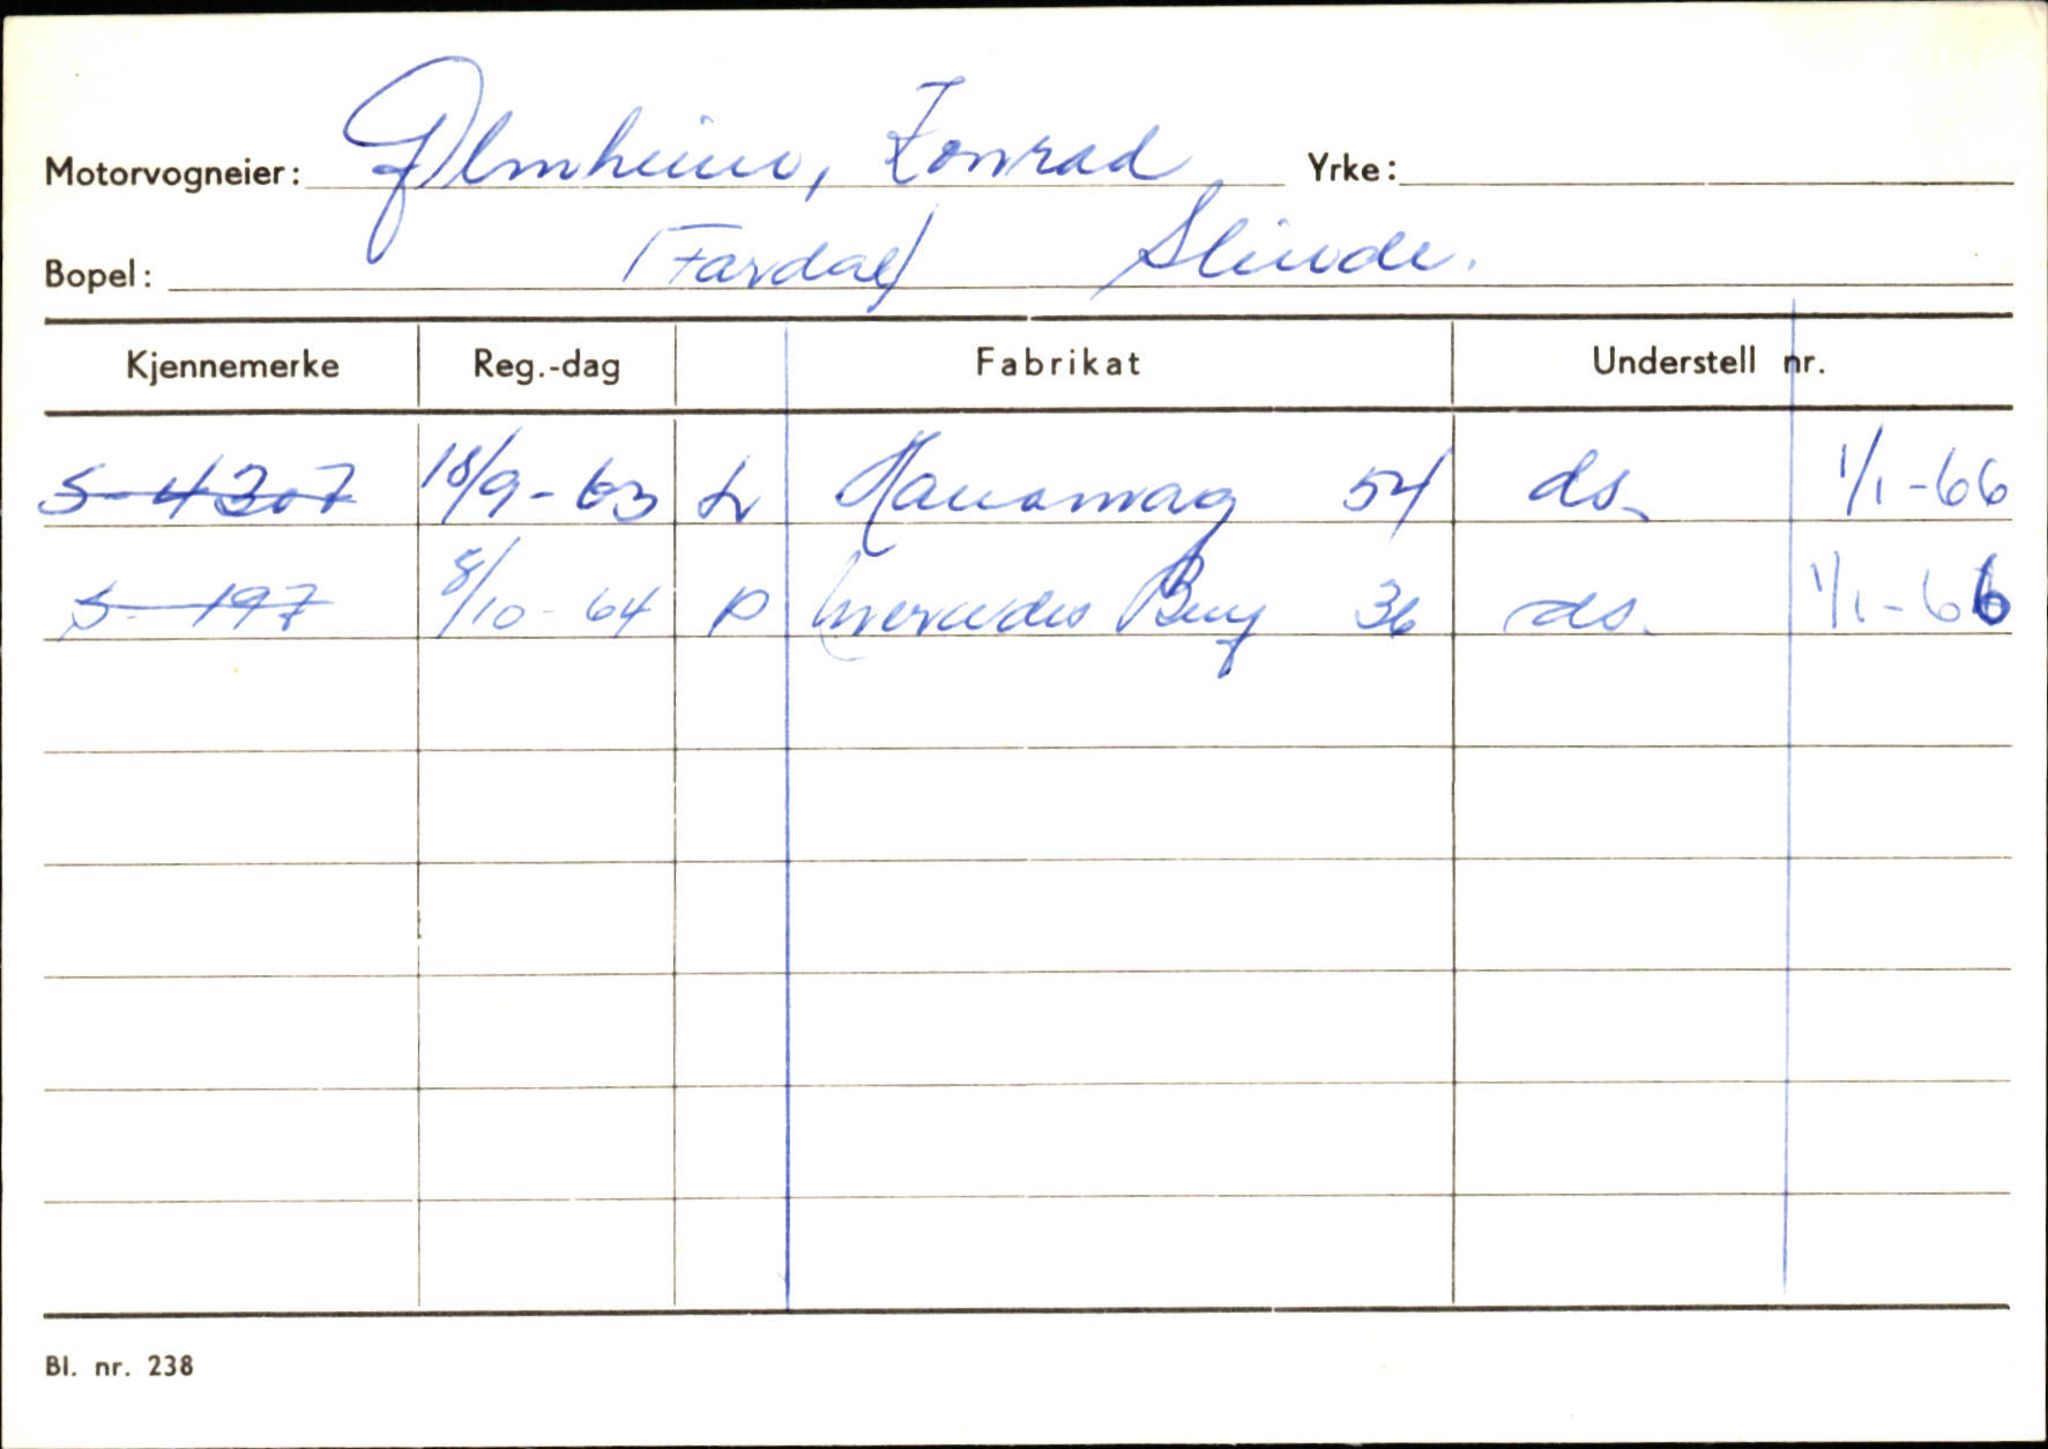 Motorvogneier: Ølmheim, Konrad Yrke:
Bopel: (Fardal) Slinde.
Kjennemerke Reg.-dag Fabrikat Understell nr.
S-4307 18/9-63 Lv Hanomag 54 ds. 1/1-66
S-197 8/10-64 P Mercedes Benz 36 ds. 1/1-66
Bl. nr. 238